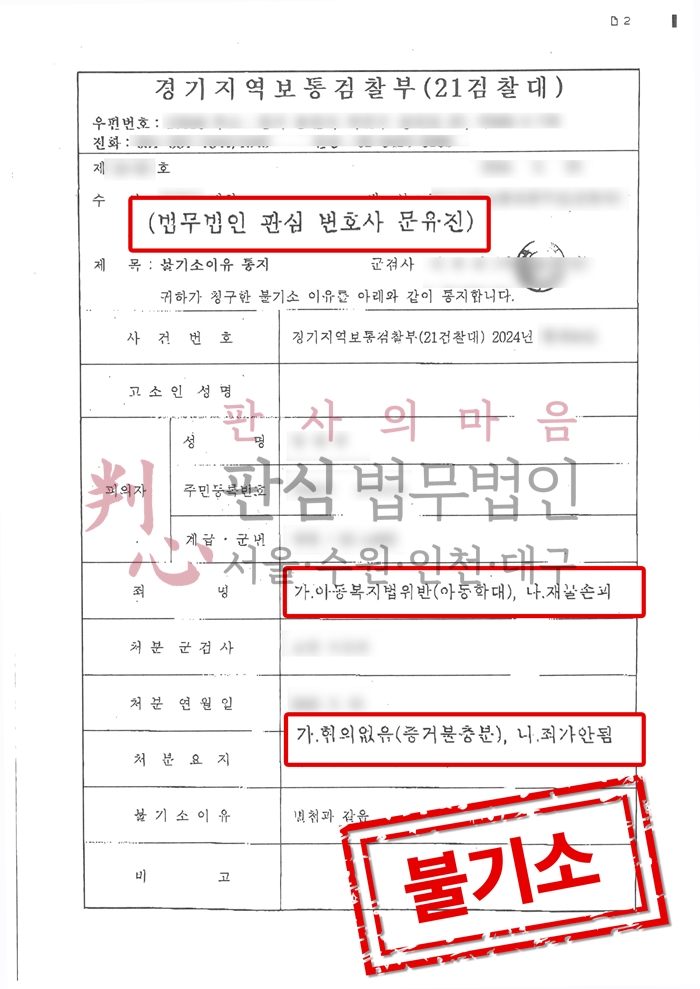 2
경기지역보통검찰부(21검찰대)
우편번호 :
전화 :
제 호
수
(법무법인 판심 변호사 문유진)
제 목 : 불기소이유 통지 군검사
귀하가 청구한 불기소 이유를 아래와 같이 통지합니다.
사 건 번 호 경기지역보통검찰부(21검찰대) 2024년
고 소 인 성 명
판사의마음
피의자 성 명
判心 판심 법무법인
주민등록번호
계급 · 군번
서울·수원·인천·대구
죄 명 가.아동복지법위반(아동학대), 나.재물손괴
처 분 군 검 사
처 분 연 월 일
처 분 요 지 가.혐의없음(증거불충분), 나.죄가안됨
불 기 소 이 유 별첨과 같음
비 고
불기소